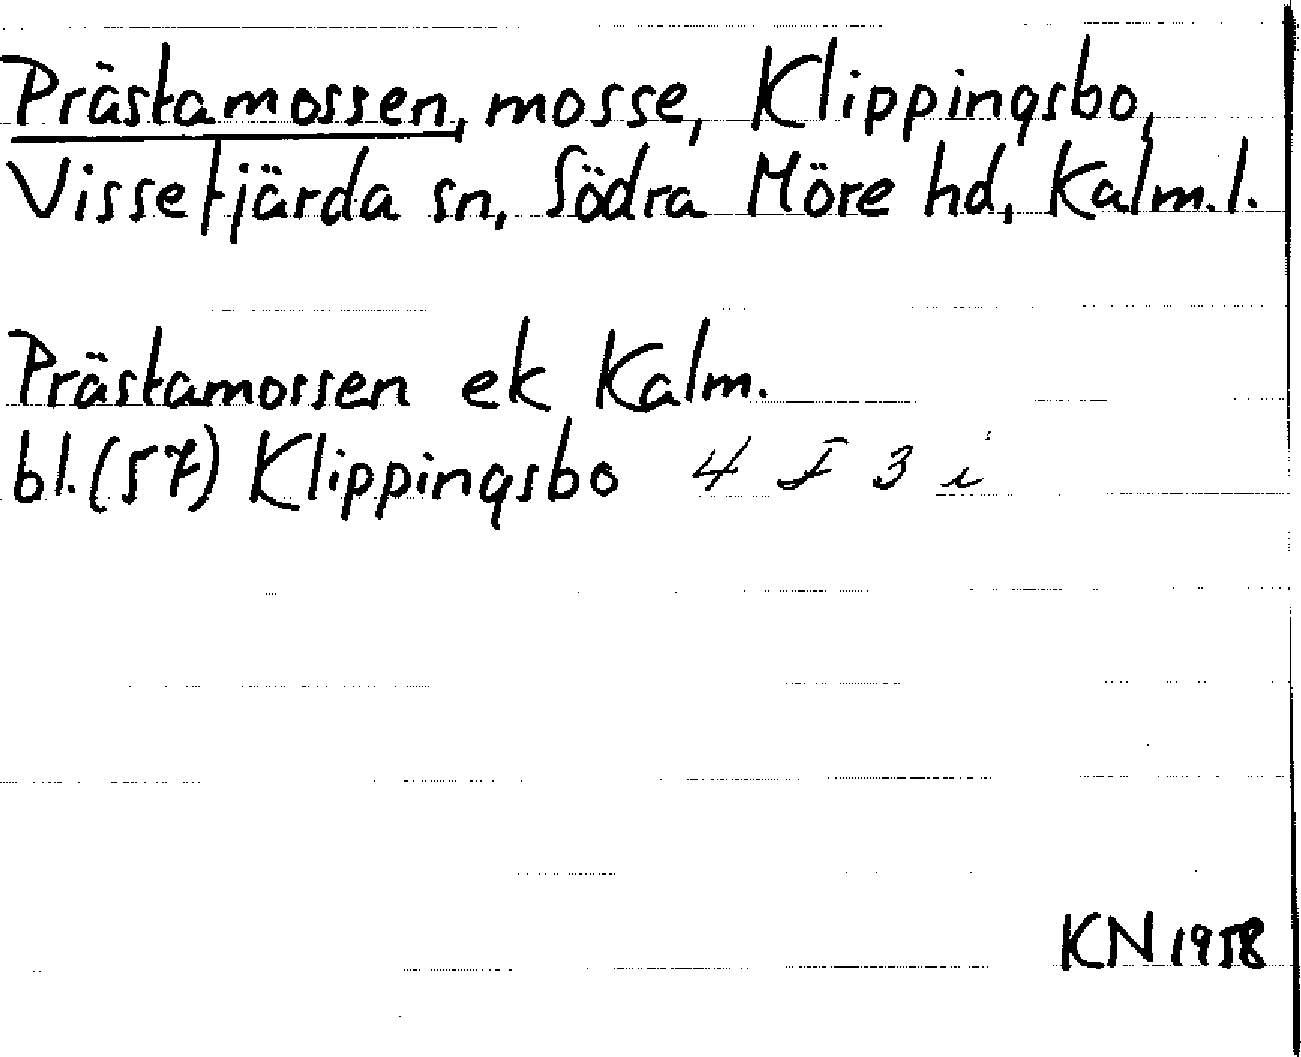 Prästamossen, mosse, Klippingsbo,
Vissefjärda sn, Södra Möre hd, Kalm.l.
Prästamossen ek Kalm.
bl.(57) Klippingsbo 4 F 3 i
KN 1958